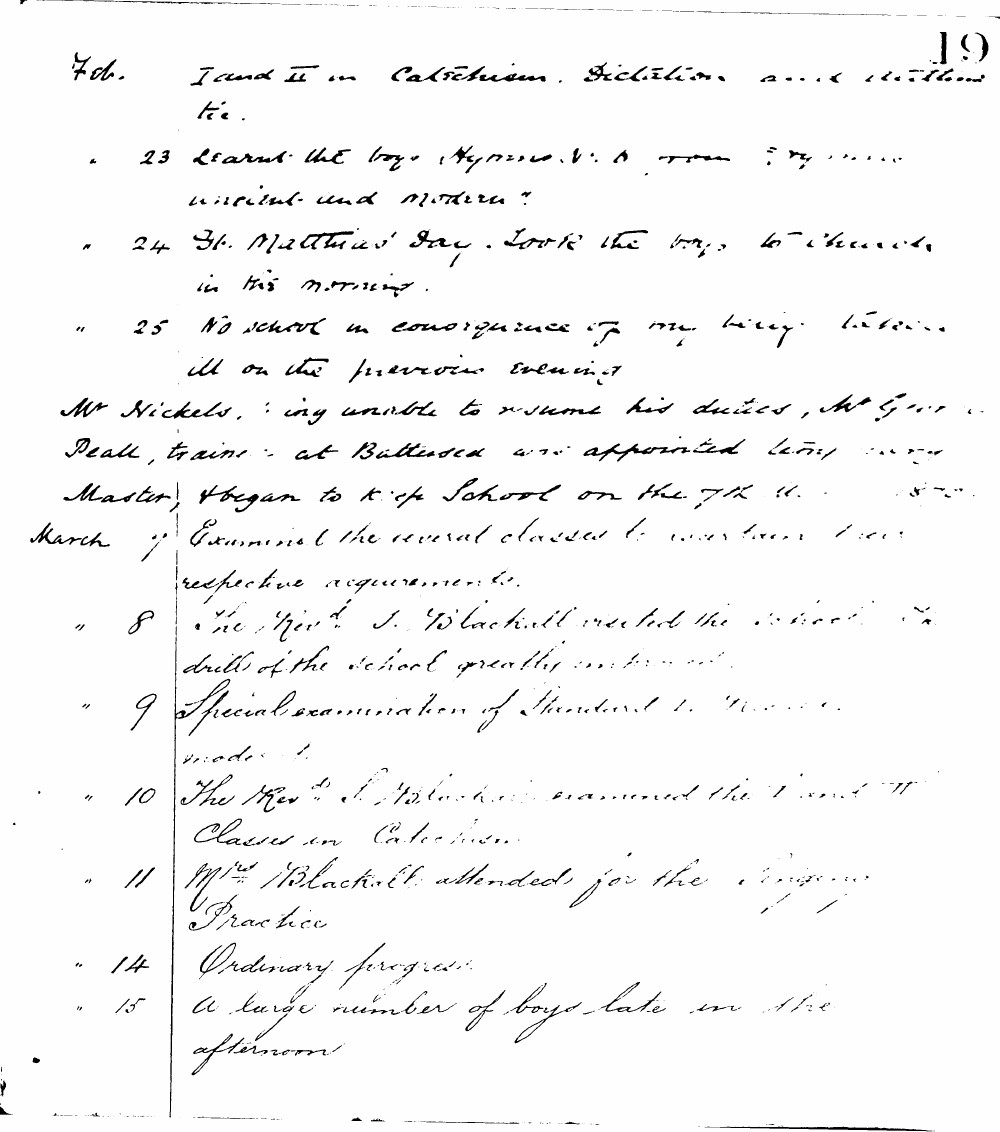 19
Feb. I and II in Catechism. Dictation and Arithme
tic.
" 23 Learnt the boys Hymns from
ancient and modern"
" 24 St. Matthias' Day. Took the boys to Church
in the morning.
" 25 No school in consequence of my being taken
ill on the previous evening
Mr Nickels, being unable to resume his duties, Mr
Peall, trained at Battersea was appointed temporary
Master, & began to keep School on the 7th
March 7 Examined the several classes to ascertain their
respective acquirements.
" 8 The Revd. S. Blackall visited the school. The
drill of the school greatly
" 9 Special examination of Standard
moderate.
" 10 The Revd. S. Blackall examined the I and II
Classes in Catechism
" 11 Mrs Blackall attended for the Singing
Practice
" 14 Ordinary progress.
" 15 A large number of boys late in the
afternoon